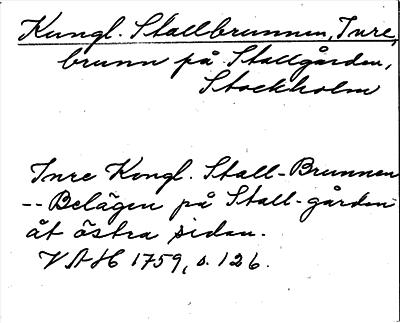 Kungl. Stallbrunnen, Inre,
brunn på Stallgården,
Stockholm
Inre Kongl. Stall-Brunnen
-- Belägen på Stall-gården
åt östra sidan.
VAH 1759, s. 126.